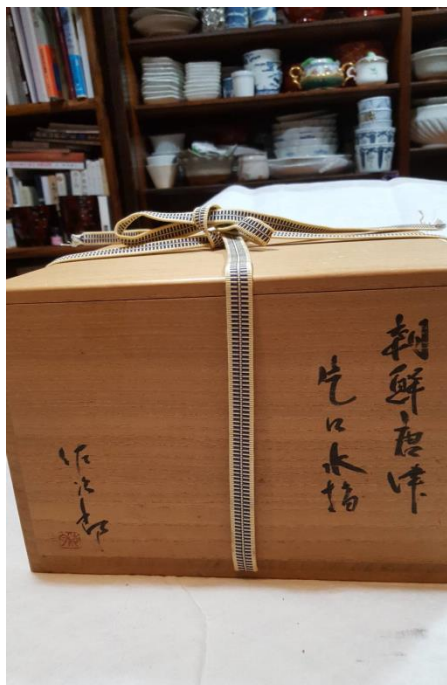 朝鮮唐津
片口水指
佐次郎